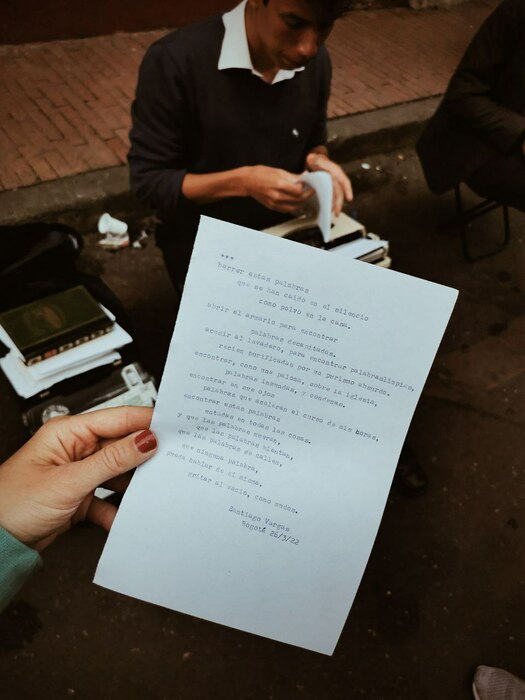 ***
barrer estas palabras
que se han caido en el silencio
como polvo en la casa.
abrir el armario para encontrar
palabras decapitadas.
acudir al lavadero, para encontrar palabraslimpias,
recien purificadas por un purismo absurdo.
encontrar, como una paloma, sobre la iglesia,
palabras inmundas, y condenas.
encontrar en sus ojos
palabras que aceleran el curso de mis horas,
encontrar estas palabras
untadas en todas las cosas.
y que las palabras mueran,
que las palabras mientan,
que las palabras se callen,
que ninguna palabra,
pueda hablar de si misma.
gritar al vacio, como mudos.
Santiago Vargas
Bogotá 26/3/22